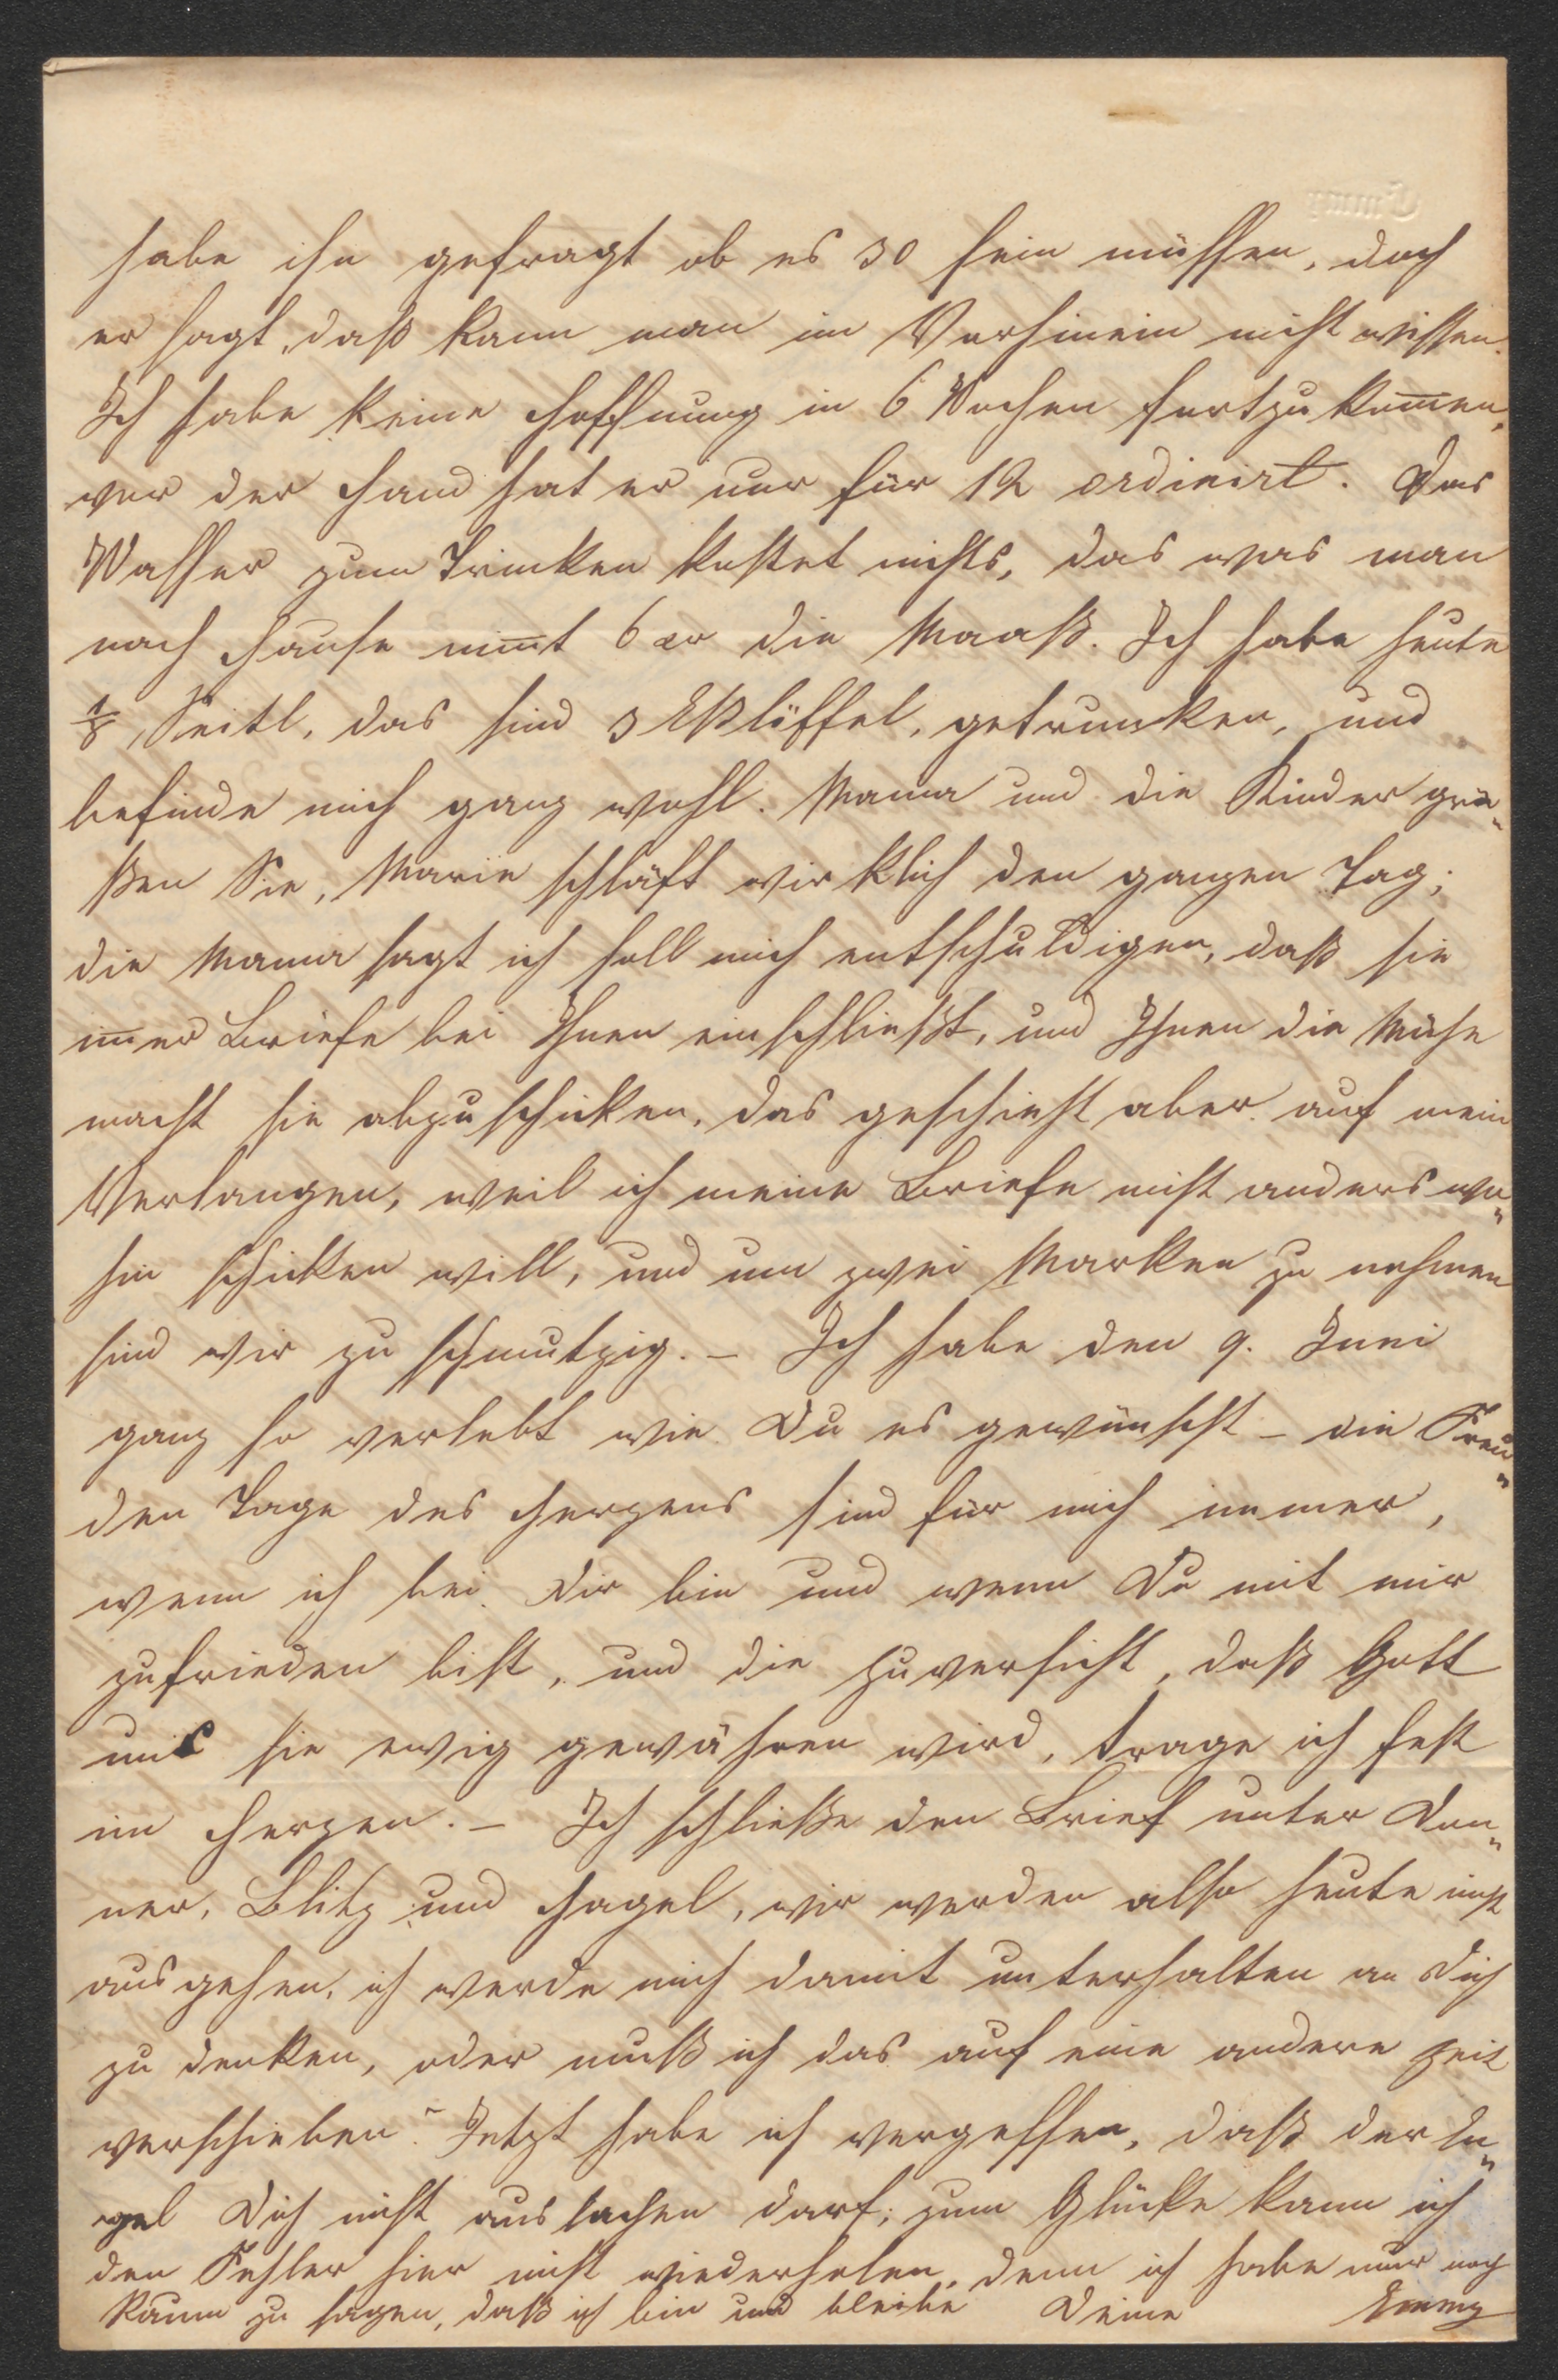 habe ihn gefragt ob es 30 sein müssen, doch
er sagt, daß kann man im Vorhinein nicht wissen.
Ich habe keine Hoffnung in 6 Wochen fortzukom̅en,
vor der Hand hat er nur für 12 ordinirt. Das
Wasser zum Trinken kostet nichts, das was man
nach Hause nim̅t 6 xr die Maaß. Ich habe heute
1/8 Seitl, das sind 3 Eßlöffel, getrunken, und
befinde mich ganz wohl. Mama und die Kinder grü„
ßen Sie, Marie schläft wirklich den ganzen Tag;
die Mama sagt ich soll mich entschuldigen, daß sie
im̅er Briefe bei Ihnen einschließt, und Ihnen die Mühe
macht sie abzuschicken, das geschieht aber auf mein
Verlangen, weil ich meine Briefe nicht anders wo„
hin schicken will, und um zwei Marken zu nehmen
sind wir zu schmutzig. – Ich habe den 9. Juni
ganz so verlebt wie Du es gewünscht – die Freu„
den Tage des Herzens sind für mich immer,
wenn ich bei Dir bin und wenn Du mit mir
zufrieden bist, und die Zuversicht, daß Gott
uns sie ewig gewähren wird, trage ich fest
im Herzen. – Ich schließe den Brief unter Don„
ner, Blitz und Hagel, wir werden also heute nicht
ausgehen, ich werde mich damit unterhalten an Dich
zu denken, oder muß ich das auf eine andere Zeit
verschieben? Jetzt habe ich vergessen, daß der En„
gel Dich nicht auslachen darf; zum Glücke kann ich
den Fehler hier nicht wiederholen, denn ich habe nur noch
Raum zu sagen, daß ich bin und bleibe Deine Emmy